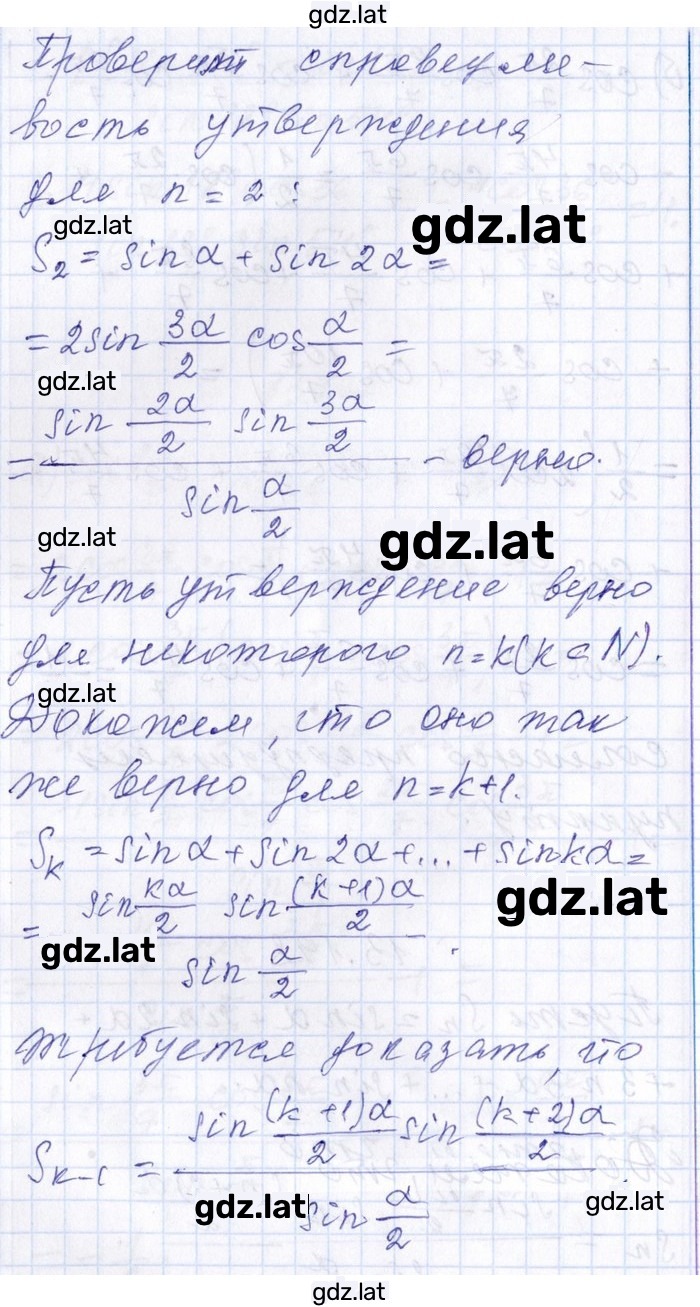 gdz.lat
Проверим справедли-
вость утверждения
для n = 2:
gdz.lat
gdz.lat
S₂ = sin α + sin 2α =
= 2 sin 3α/2 cos α/2 =
gdz.lat
= (sin 2α/2 sin 3α/2) / (sin α/2) – верно.
gdz.lat
gdz.lat
Пусть утверждение верно
для некоторого n = k (k ∈ N).
gdz.lat
Докажем, что оно так
же верно для n = k+1.
S_k = sin α + sin 2α + ... + sin kα =
gdz.lat
= (sin kα/2 sin (k+1)α/2) / (sin α/2).
gdz.lat
Требуется доказать, что
S_k-1 = (sin (k+1)α/2 sin (k+2)α/2) / (sin α/2)
gdz.lat
gdz.lat
gdz.lat